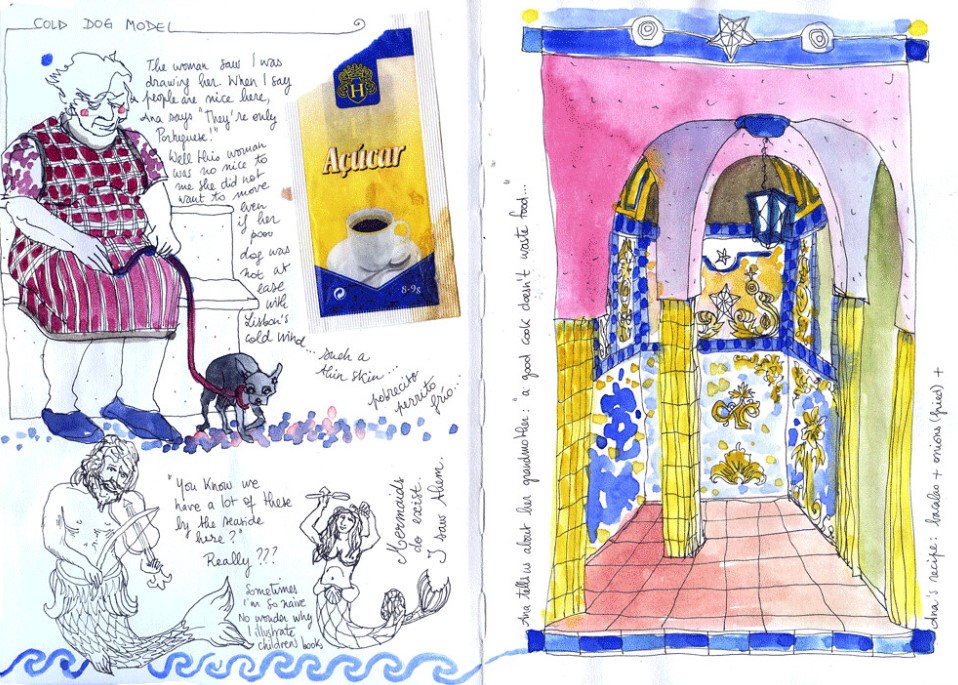 COLD DOG MODEL
The woman saw I was
drawing her. When I say
people are nice here,
Ana says "They're only
Portuguese!"
Well this woman
was no nice to
me she did not
want to move
even
if her
poor
dog was
not at
ease
with
Lisbon's
cold wind...
such a
thin skin...
pobrecito
perrito
frío...
H
Açúcar
8-9g
"You know we
have a lot of these
by the seaside
here?"
Really???
Sometimes
I'm so naive
No wonder why
I illustrate
children books
Mermaids
do exist.
I saw them.
Ana tells us about her grandmother: "a good cook doesn't waste food..."
Ana's recipe: bacalao + onions (fried) +